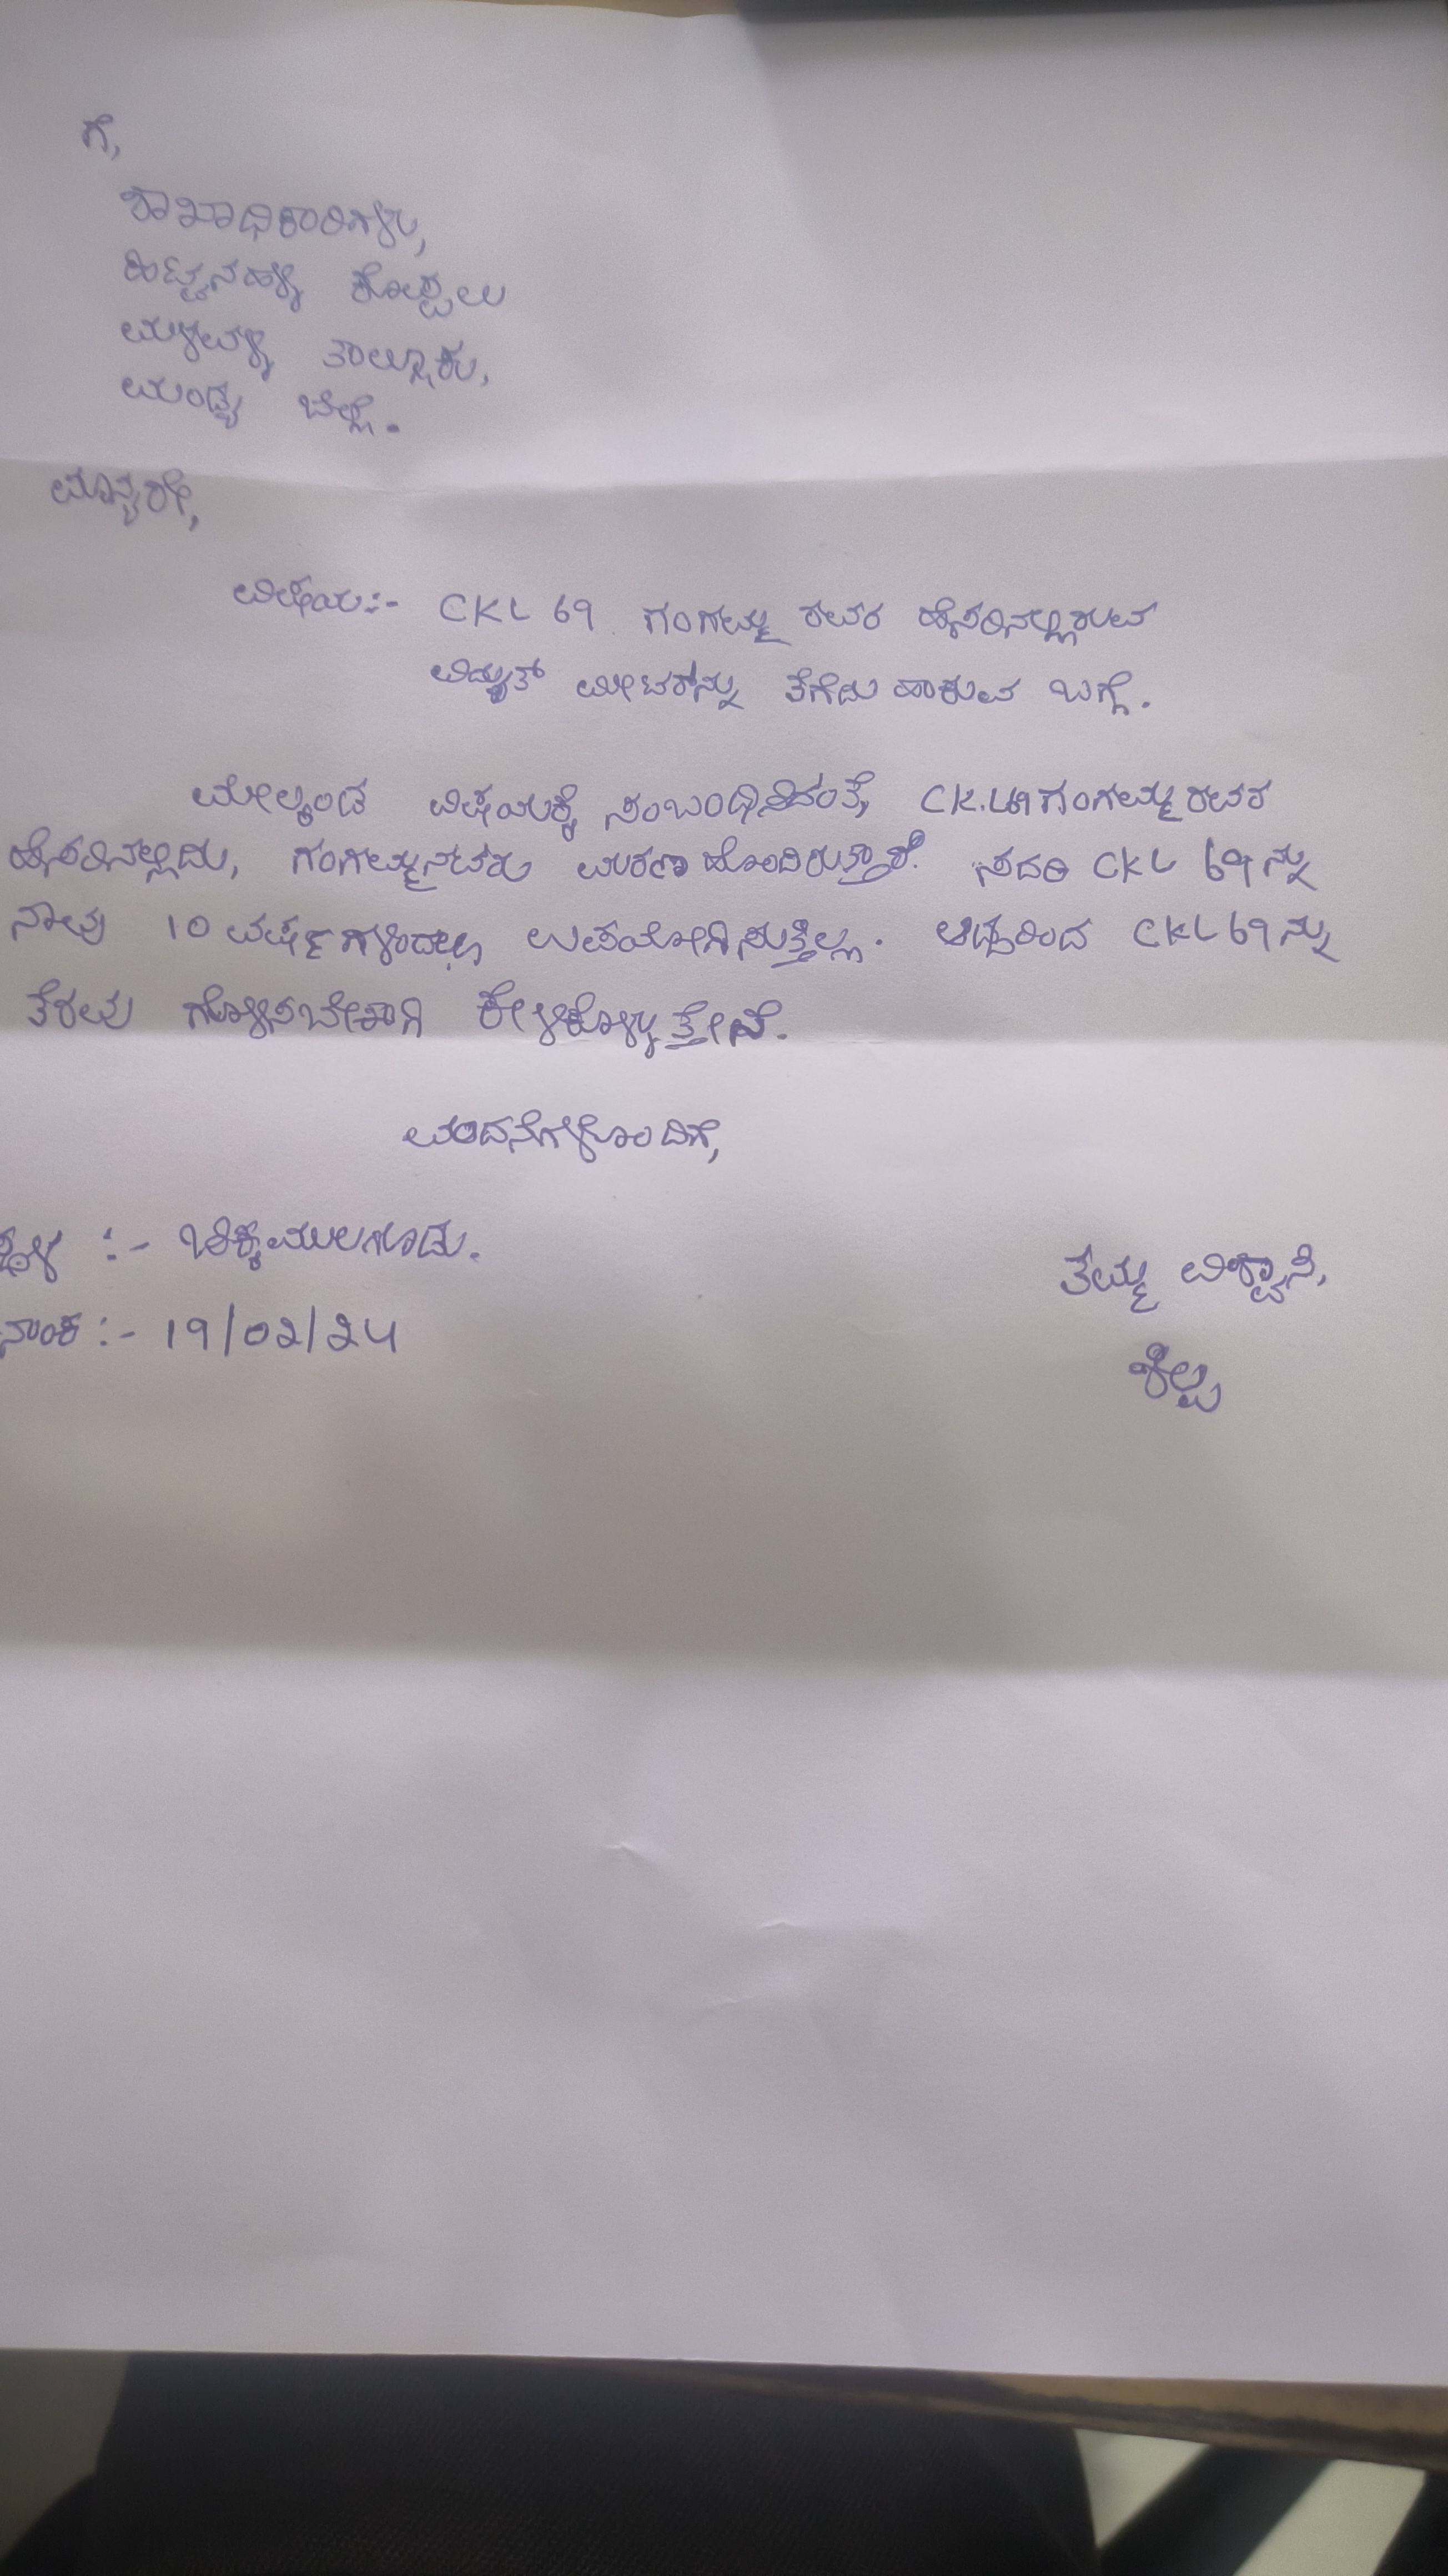 ಗೆ,
ಶಾಖಾಧಿಕಾರಿಗಳು,
ಹಿಟ್ಟನಹಳ್ಳಿ ಕೊಪ್ಪಲು
ಮಳವಳ್ಳಿ ತಾಲ್ಲೂಕು,
ಮಂಡ್ಯ ಜಿಲ್ಲೆ.
ಮಾನ್ಯರೇ,
ವಿಷಯ:- CKL 69 ಗಂಗಮ್ಮ ರವರ ಹೆಸರಿನಲ್ಲಿರುವ
ವಿದ್ಯುತ್ ಮೀಟರ್‌ನ್ನು ತೆಗೆದು ಹಾಕುವ ಬಗ್ಗೆ.
ಮೇಲ್ಕಂಡ ವಿಷಯಕ್ಕೆ ಸಂಬಂಧಿಸಿದಂತೆ, CKL69 ಗಂಗಮ್ಮ ರವರ
ಹೆಸರಿನಲ್ಲಿದು, ಗಂಗಮ್ಮನವರು ಮರಣ ಹೊಂದಿರುತ್ತಾರೆ. ಸದರಿ CKL 69ನ್ನು
ನಾವು 10 ವರ್ಷಗಳಿಂದಲೂ ಉಪಯೋಗಿಸುತ್ತಿಲ್ಲ. ಆದ್ದರಿಂದ CKL69ನ್ನು
ತೆರವು ಗೊಳಿಸಬೇಕಾಗಿ ಕೇಳಿಕೊಳ್ಳುತ್ತೇನೆ.
ವಂದನೆಗಳೊಂದಿಗೆ,
ಸ್ಥಳ :- ಚಿಕ್ಕಮುಲಗೂಡು.
ನಾಂಕ :- 19/02/24
ತಮ್ಮ ವಿಶ್ವಾಸಿ,
ಶಿಲ್ಪ